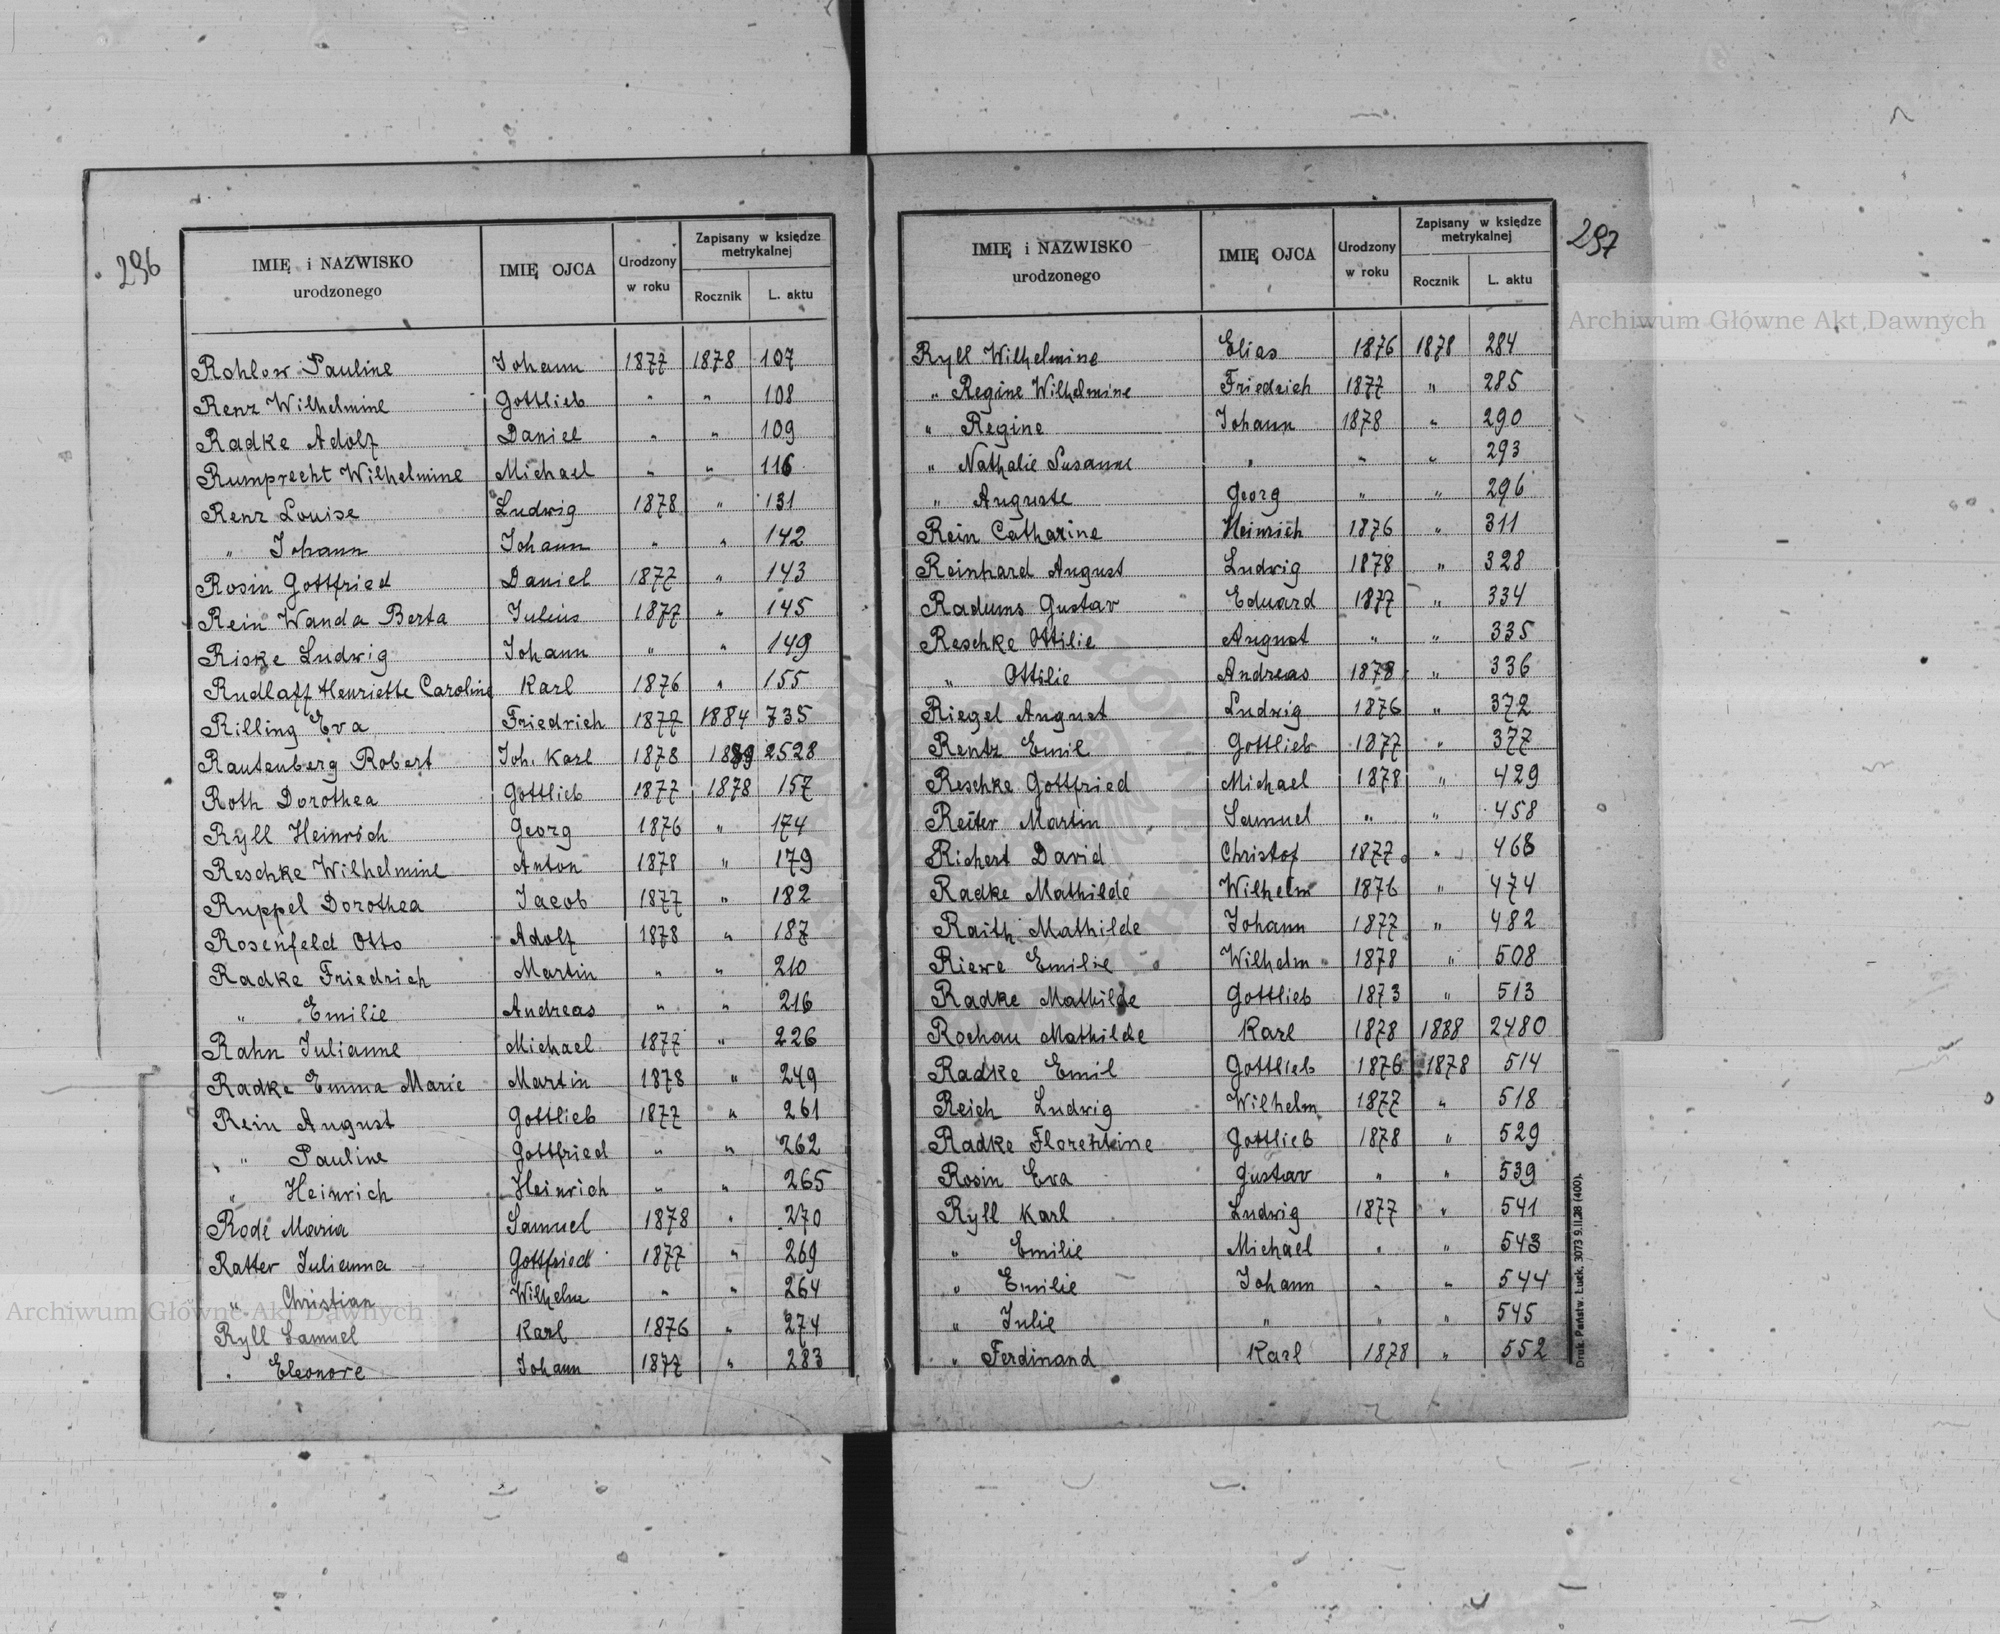 296
IMIĘ i NAZWISKO urodzonego IMIĘ OJCA Urodzony w roku Zapisany w księdze metrykalnej Rocznik L. aktu
Rohlow Pauline Johann 1877 1878 107
Renz Wilhelmine Gottlieb " " 108
Radke Adolf Daniel " " 109
Rumprecht Wilhelmine Michael " " 116
Renz Louise Ludwig 1878 " 131
" Johann Johann " " 142
Rosin Gottfried Daniel 1877 " 143
Rein Wanda Berta Julius 1877 " 145
Riske Ludwig Johann " " 149
Rudlaff Henriette Caroline Karl 1876 " 155
Rilling Eva Friedrich 1877 1884 735
Rautenberg Robert Joh. Karl 1878 1889 2528
Roth Dorothea Gottlieb 1877 1878 157
Ryll Heinrich Georg 1876 " 174
Reschke Wilhelmine Anton 1878 " 179
Ruppel Dorothea Jacob 1877 " 182
Rosenfeld Otto Adolf 1878 " 187
Radke Friedrich Martin " " 210
" Emilie Andreas " " 216
Rahn Julianne Michael 1877 " 226
Radke Emma Marie Martin 1878 " 249
Rein August Gottlieb 1877 " 261
" Pauline Gottfried " " 262
" Heinrich Heinrich " " 265
Rode Maria Samuel 1878 " 270
Ratter Julianna Gottfried 1877 " 269
" Christian Wilhelm " " 264
Ryll Samuel Karl 1876 " 274
" Eleonore Johann 1877 " 283
297
IMIĘ i NAZWISKO urodzonego IMIĘ OJCA Urodzony w roku Zapisany w księdze metrykalnej Rocznik L. aktu
Ryll Wilhelmine Elias 1876 1878 284
" Regine Wilhelmine Friedrich 1877 " 285
" Regine Johann 1878 " 290
" Nathalie Susanne " " " 293
" Auguste Georg " " 296
Rein Catharine Heinrich 1876 " 311
Reinhard August Ludwig 1878 " 328
Radums Gustav Eduard 1877 " 334
Reschke Ottilie August " " 335
" Ottilie Andreas 1878 " 336
Riegel August Ludwig 1876 " 372
Rentz Emil Gottlieb 1877 " 377
Reschke Gottfried Michael 1878 " 429
Reiter Martin Samuel " " 458
Richert David Christof 1877 " 468
Radke Mathilde Wilhelm 1876 " 474
Raith Mathilde Johann 1877 " 482
Riewe Emilie Wilhelm 1878 " 508
Radke Mathilde Gottlieb 1873 " 513
Rochau Mathilde Karl 1878 1888 2480
Radke Emil Gottlieb 1876 1878 514
Reich Ludwig Wilhelm 1877 " 518
Radke Florentine Gottlieb 1878 " 529
Rosin Eva Gustav " " 539
Ryll Karl Ludwig 1877 " 541
" Emilie Michael " " 543
" Emilie Johann " " 544
" Julie " " " 545
" Ferdinand Karl 1878 " 552
Druk. Państw. Łuck. 3073 9.II.28 (400).
Archiwum Główne Akt Dawnych
Archiwum Główne Akt Dawnych